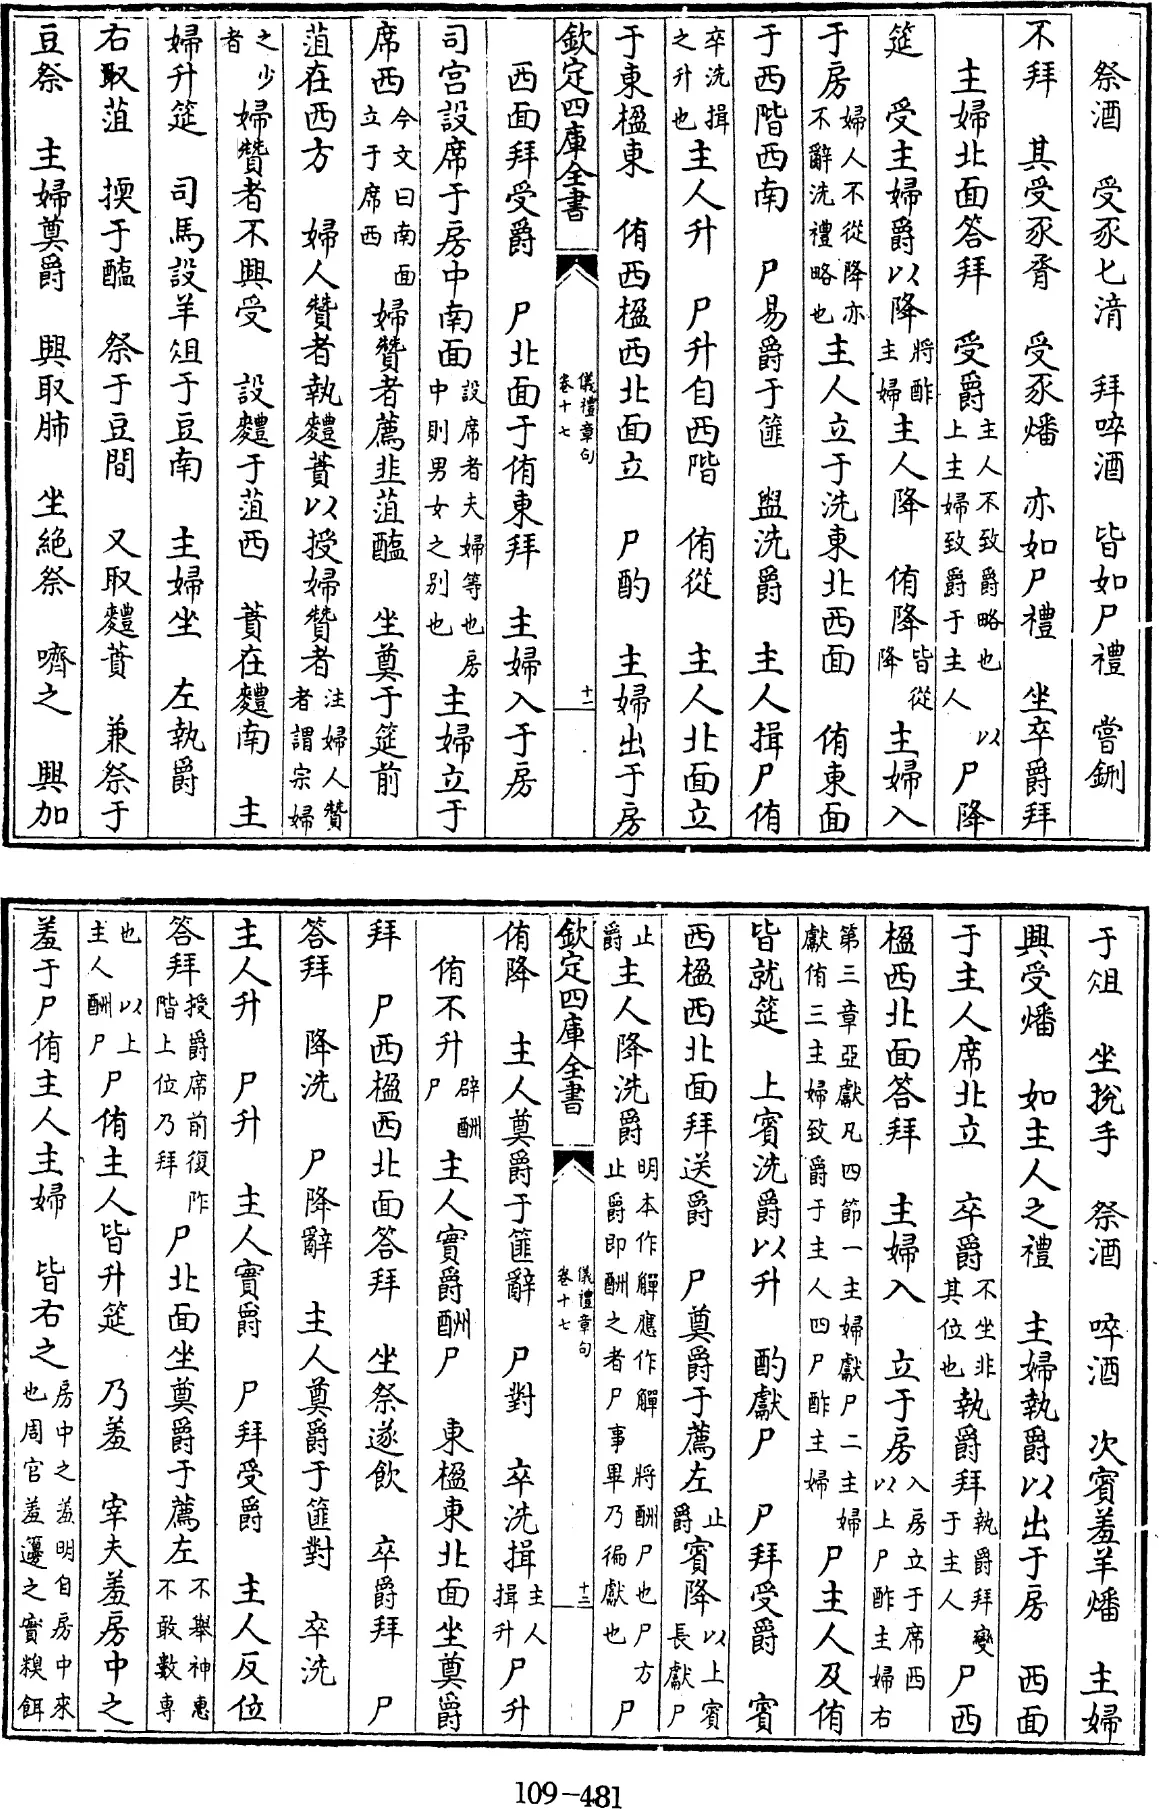 祭酒 受豕匕湇 拜啐酒 皆如尸禮 嘗鉶
不拜 其受豕脀 受豕燔 亦如尸禮 坐卒爵拜
主婦北面答拜 受爵主人不致爵略也以上主婦致爵于主人 尸降
筵 受主婦爵以降將酢主婦主人降 侑降皆從降 主婦入
于房婦人不從降亦不辭洗禮略也主人立于洗東北西面 侑東面
于西階西南 尸易爵于篚 盥洗爵 主人揖尸侑
卒洗揖之升也主人升 尸升自西階 侑從 主人北面立
于東楹東 侑西楹西北面立 尸酌 主婦出于房
欽定四庫全書 儀禮章句卷十七 十二
西面拜受爵 尸北面于侑東拜 主婦入于房
司宫設席于房中南面設席者夫婦等也房中則男女之别也主婦立于
席西今文曰南面立于席西婦贊者薦韭菹醢 坐奠于筵前
菹在西方 婦人贊者執麷蕡以授婦贊者注婦人贊者謂宗婦
之少者婦贊者不興受 設麷于菹西 蕡在麷南 主
婦升筵 司馬設羊俎于豆南 主婦坐 左執爵
右取菹 㨎于醢 祭于豆間 又取麷蕡 兼祭于
豆祭 主婦奠爵 興取肺 坐絶祭 嚌之 興加
于俎 坐挩手 祭酒 啐酒 次賓羞羊燔 主婦
興受燔 如主人之禮 主婦執爵以出于房 西面
于主人席北立 卒爵不坐非其位也執爵拜執爵拜變于主人尸西
楹西北面答拜 主婦入 立于房入房立于席西以上尸酢主婦右
第三章亞獻凡四節一主婦獻尸二主婦獻侑三主婦致爵于主人四尸酢主婦尸主人及侑
皆就筵 上賓洗爵以升 酌獻尸 尸拜受爵 賓
西楹西北面拜送爵 尸奠爵于薦左止爵賓降以上賓長獻尸
止爵主人降洗爵明本作觶應作觶將酬尸也尸方止爵即酬之者尸事畢乃徧獻也尸
欽定四庫全書 儀禮章句卷十七 十三
侑降 主人奠爵于篚辭 尸對 卒洗揖主人揖升尸升
侑不升辟酬尸主人實爵酬尸 東楹東北面坐奠爵
拜 尸西楹西北面答拜 坐祭遂飲 卒爵拜 尸
答拜 降洗 尸降辭 主人奠爵于篚對 卒洗
主人升 尸升 主人實爵 尸拜受爵 主人反位
答拜授爵席前復阼階上位乃拜尸北面坐奠爵于薦左不舉神惠不敢數專
也以上主人酬尸尸侑主人皆升筵 乃羞 宰夫羞房中之
羞于尸侑主人主婦 皆右之房中之羞明自房中來也周官羞籩之實糗餌
109-481